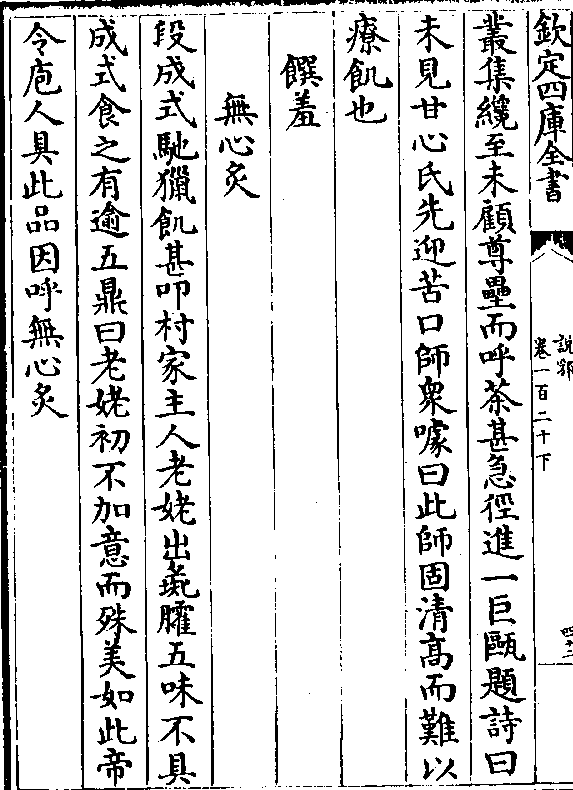 欽定四庫全書
說郛
卷一百二十下
四十二
叢集纔至未顧尊罍而呼茶甚急徑進一巨甌題詩曰
未見甘心氏先迎苦口師衆噱曰此師固清高而難以
療飢也
饌羞
無心炙
段成式馳獵飢甚叩村家主人老姥出彘臛五味不具
成式食之有逾五鼎曰老姥初不加意而殊美如此帝
令庖人具此品因呼無心炙